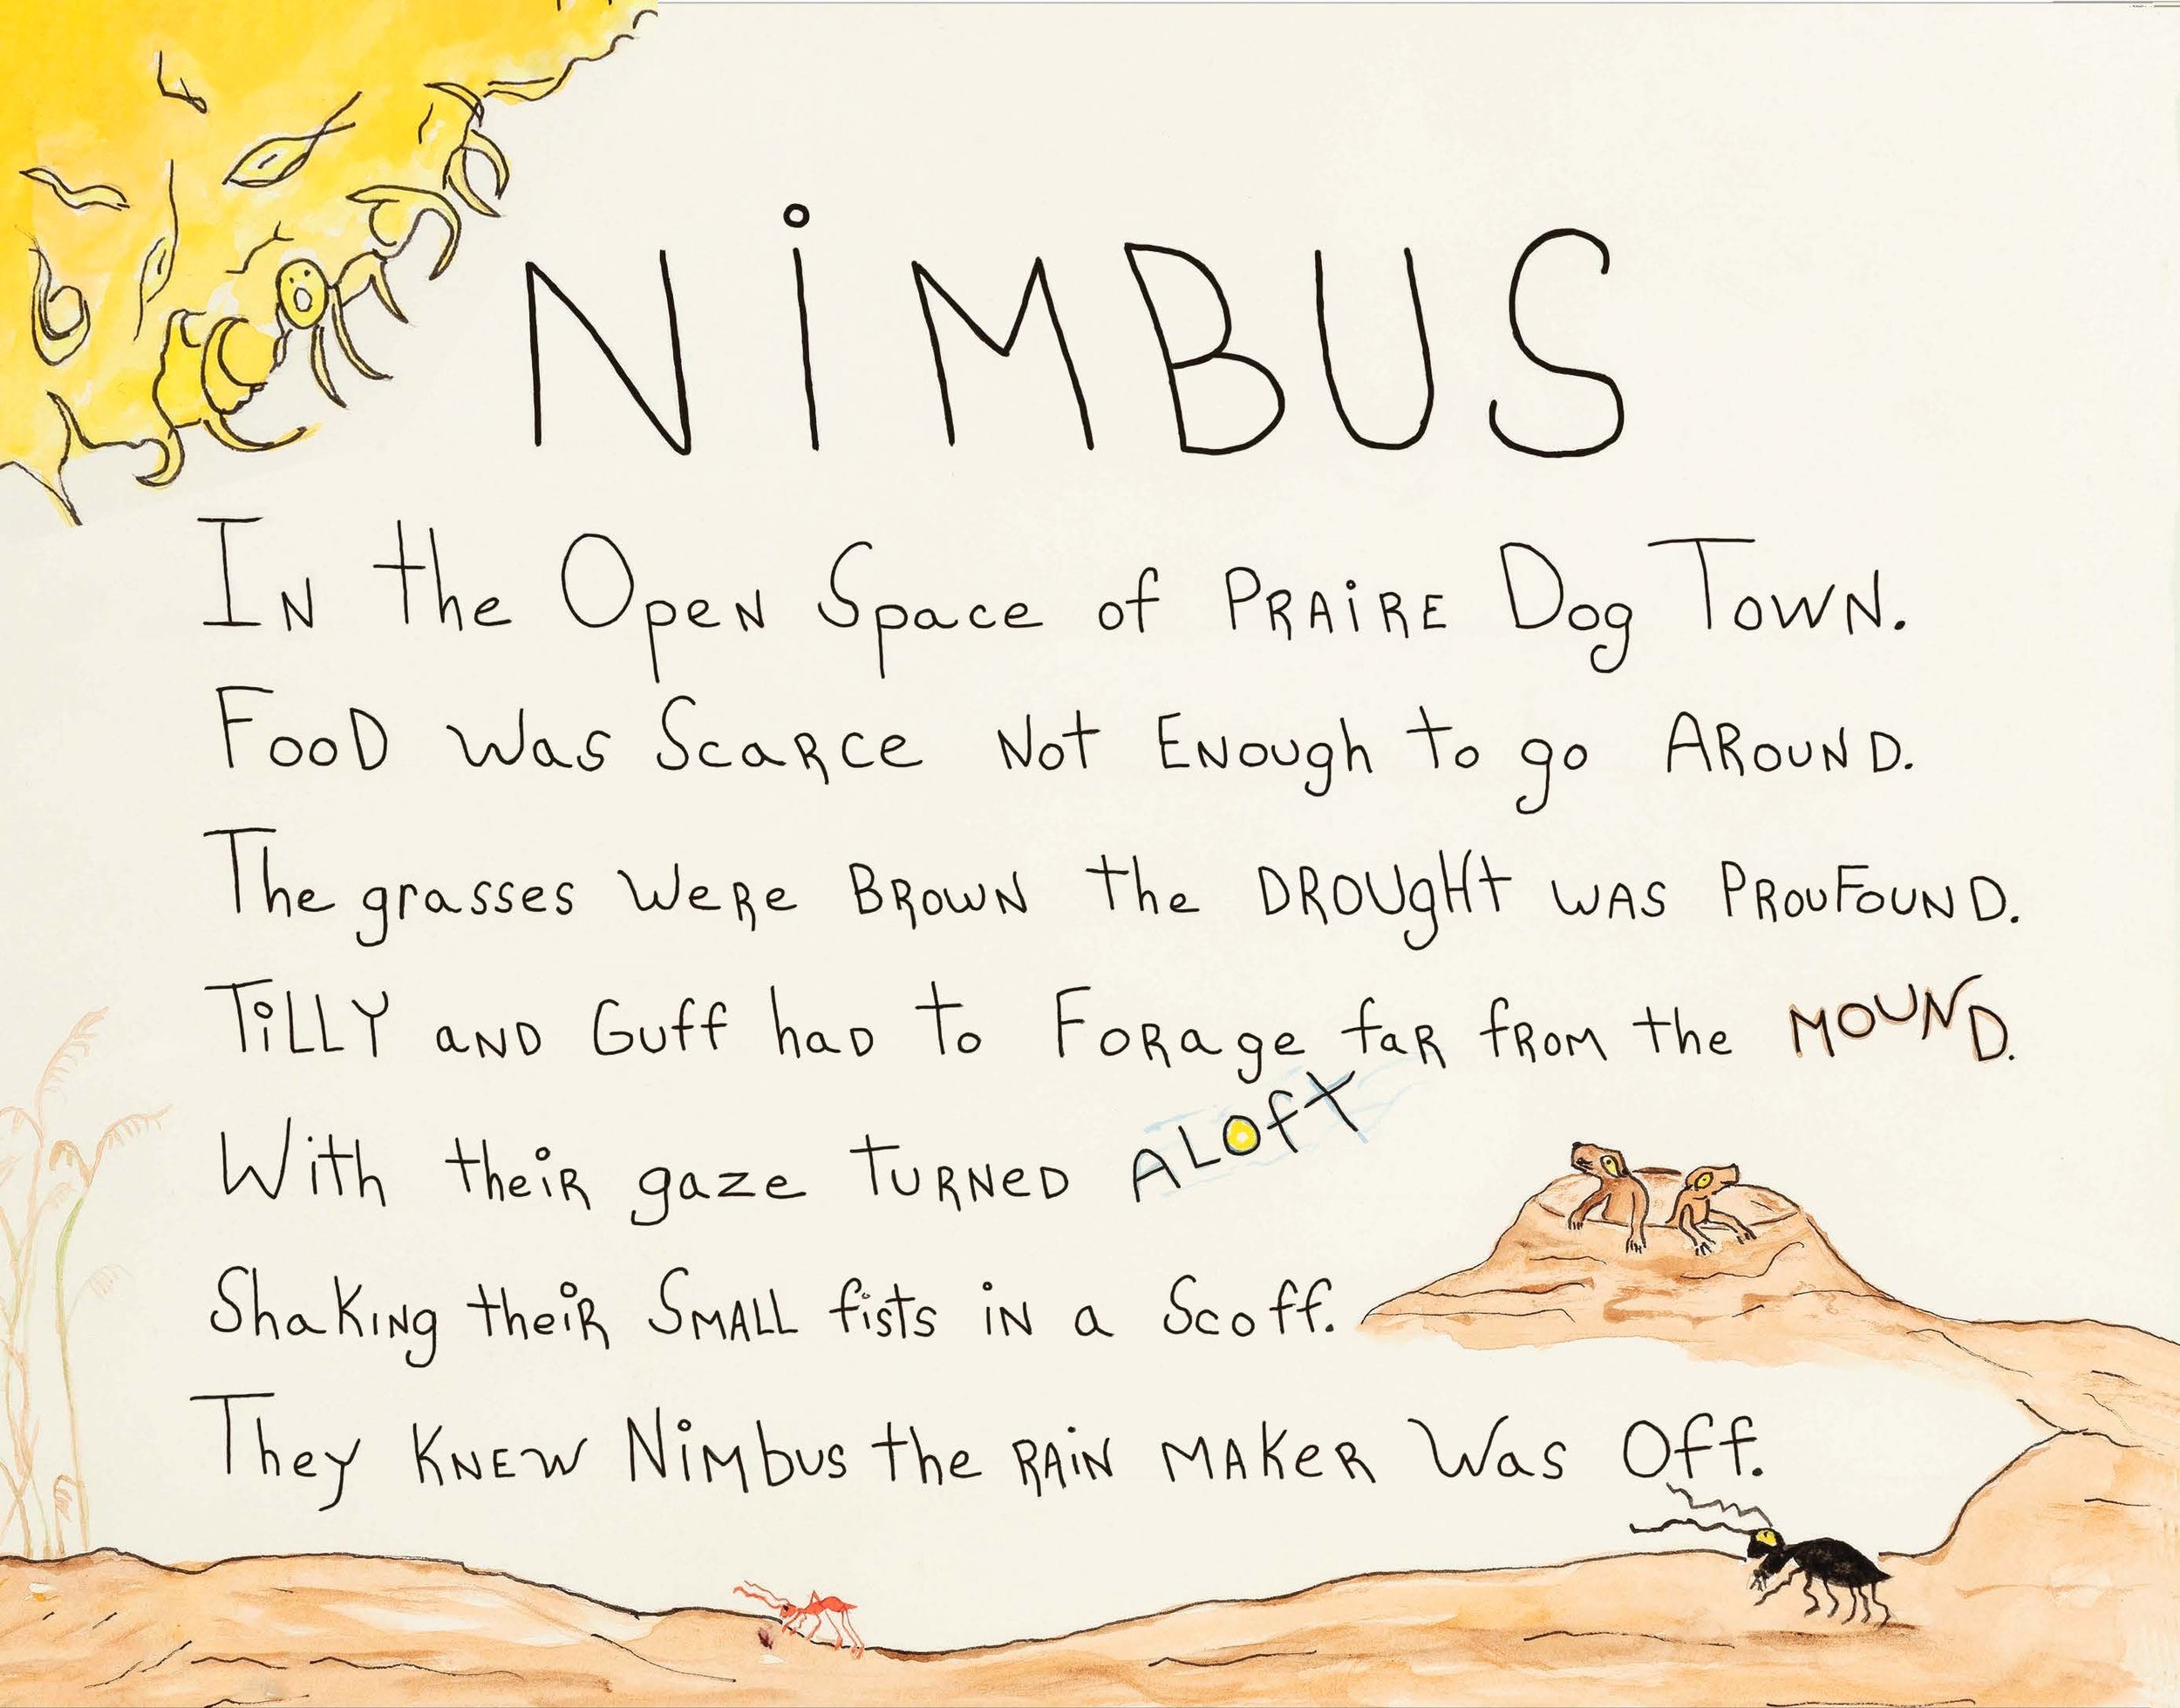 NiMBUS
IN the Open Space of PRAiRE Dog TOWN.
FOOD was Scarce Not Enough to go AROUND.
The grasses were BROWN the DROUgHt WAS PROUFOUND.
TiLLY aND Guff haD to Forage faR fROM the MOUND.
With theiR gaze TURNeD ALOft
ShakiNg theiR SMALL fists iN a Scoff.
They KNEW NiMbus the RAiN MAKeR Was Off.